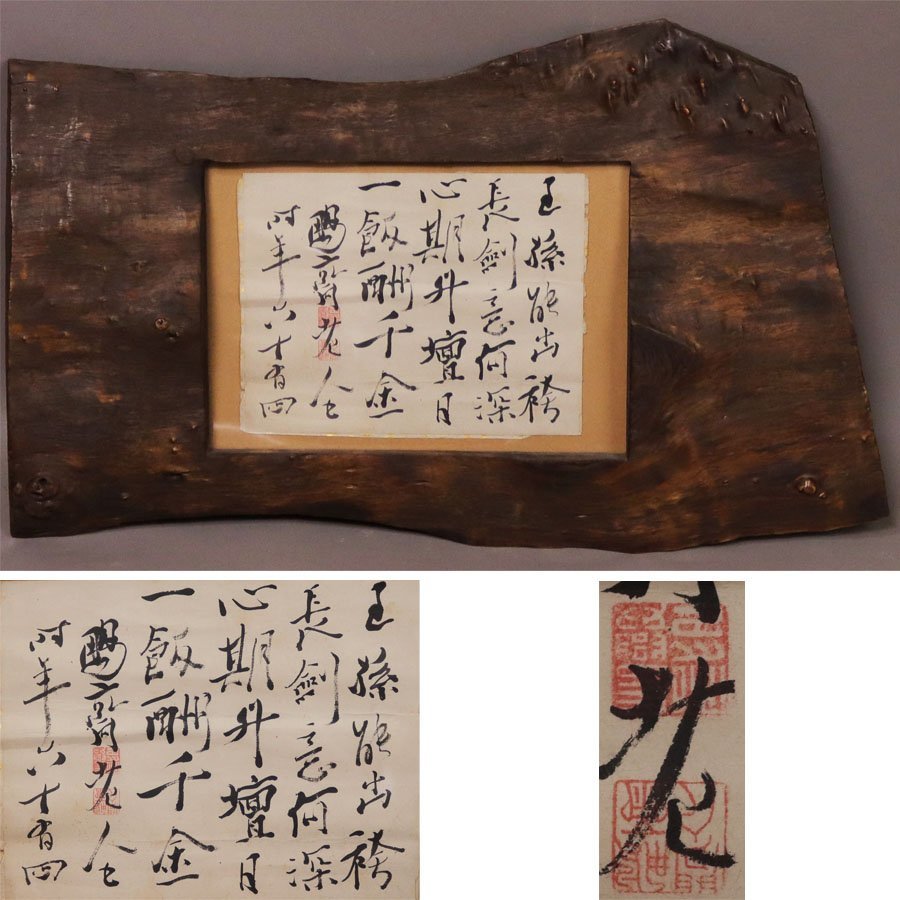 王孫能出袴
長劍意何深
心期升壇日
一飯酬千金
鵬齋老人
時年六十有四
王孫能出袴
長劍意何深
心期升壇日
一飯酬千金
鵬齋老人
時年六十有四
老